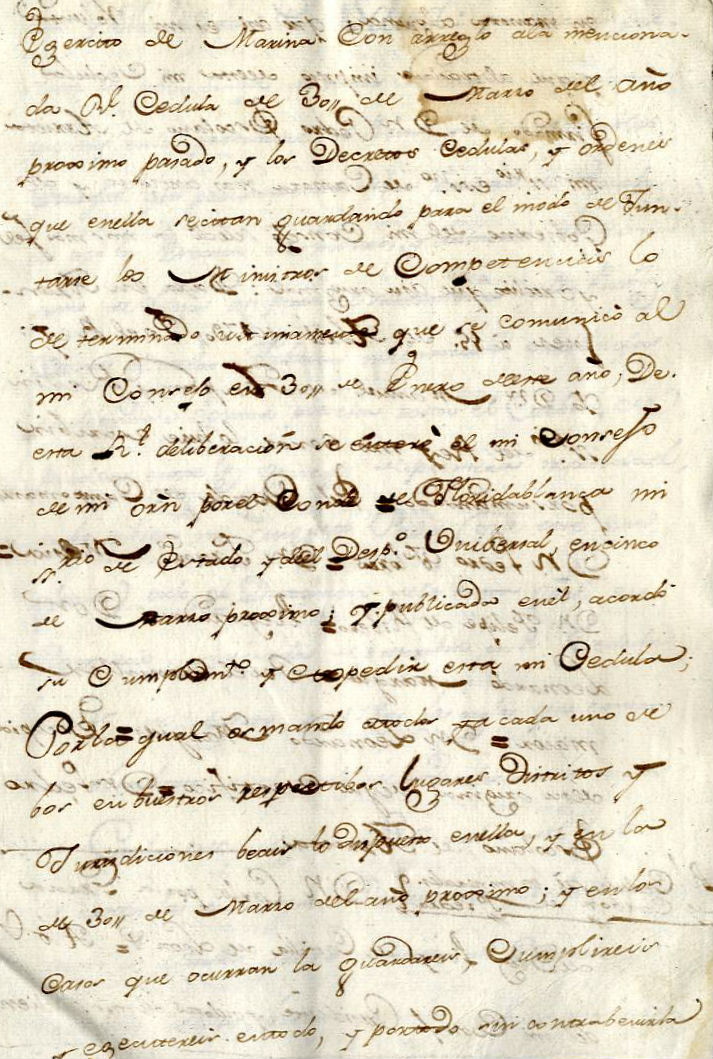 Egercito de Marina. Con arreglo ala menciona-
da Rl. Cedula de 30,, de Marzo del año
proximo pasado, y los Decretos Cedulas, y ordenes
que enella secitan guardando para el modo de Jun-
tarse los Ministros de Competencias lo
de terminado ultimamente que se comunicò al
mi Consejo en 30,, de Enero deste año; De
esta Rl. deliberacion se enterò el mi Consejo
de mi orñ porel Conde de Floridablanca mi
de Estado y del Desp.o Unibersal, encinco
de Marzo proximo; y publicada enel, acordò
su Cumplim.to y expedir esta mi Cedula;
Porlo qual os mando atodos y a cada uno de
bos en buestros respectibos lugares Distritos y
Jurisdiciones beais lo dispuesto enella, y en la
de 30,, de Marzo del año proximo; y enlos
Casos que ocurran la guardareis, Cumplireis
y egecutereis entodo, y portodo sin contrabenirla